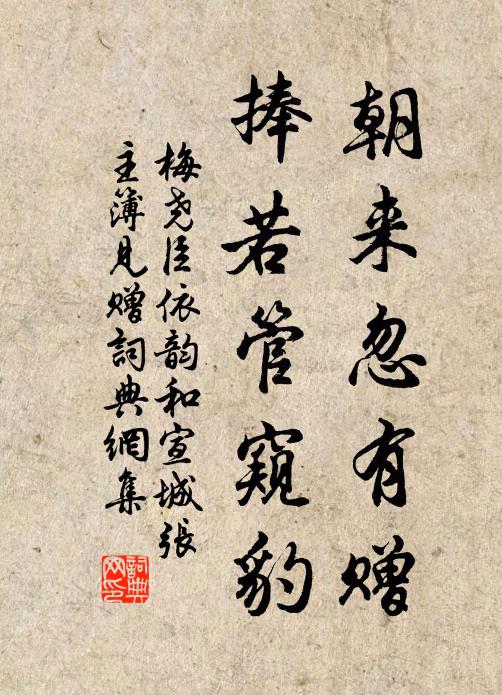 朝来忽有赠
捧若管窥豹
梅尧臣依韵和宣城張
主簿見贈詞典網集
詞典
网印